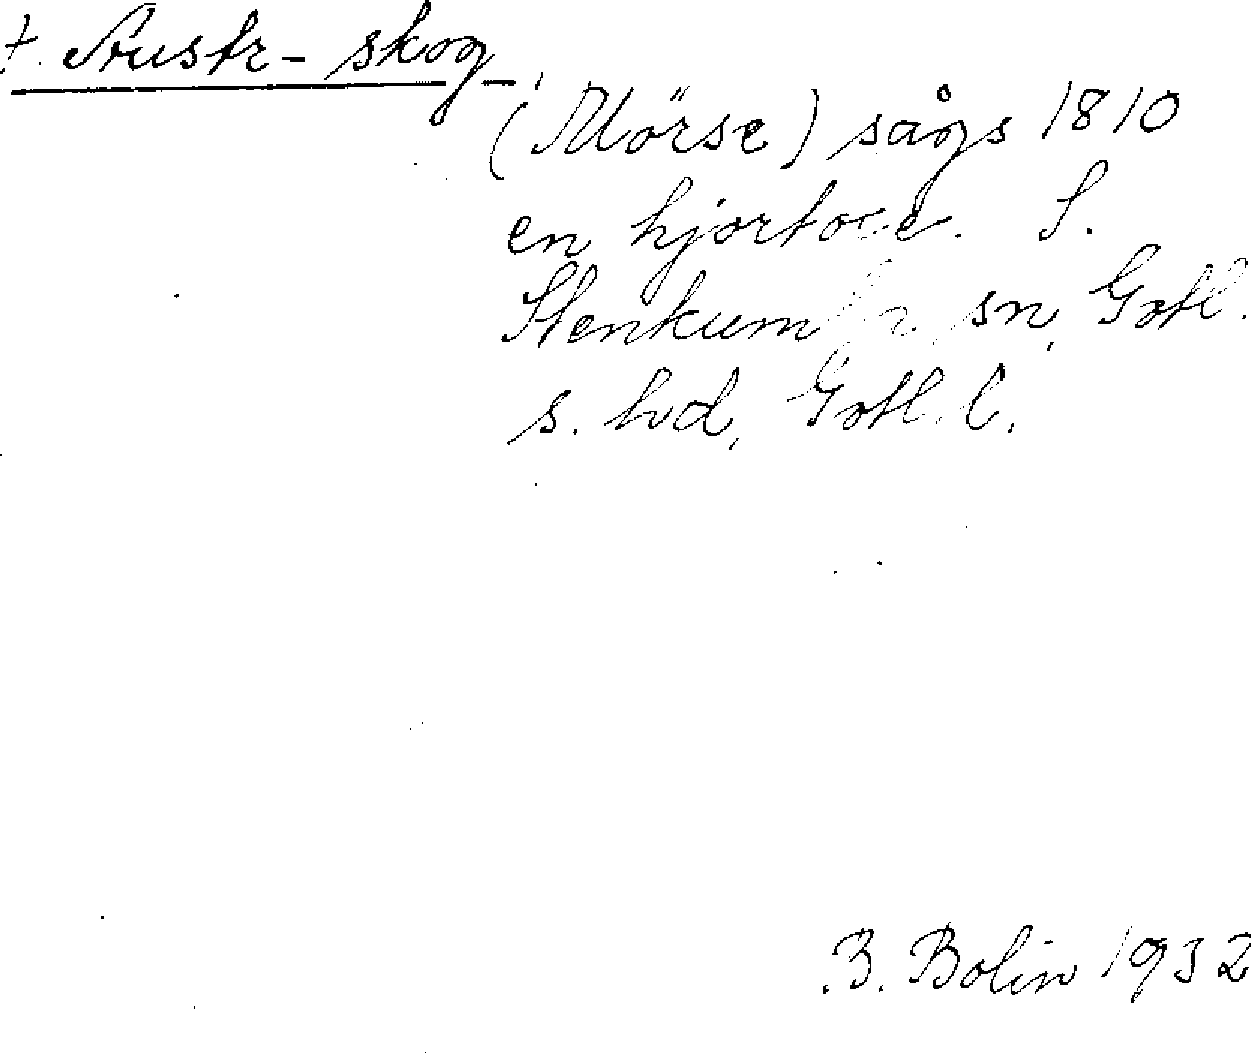 †. Austr-skog
(Mörse) sågs 1810
en S.
Stenkumla sn, Gotl.
s. hd, Gotl. l.
B. Bolin 1932